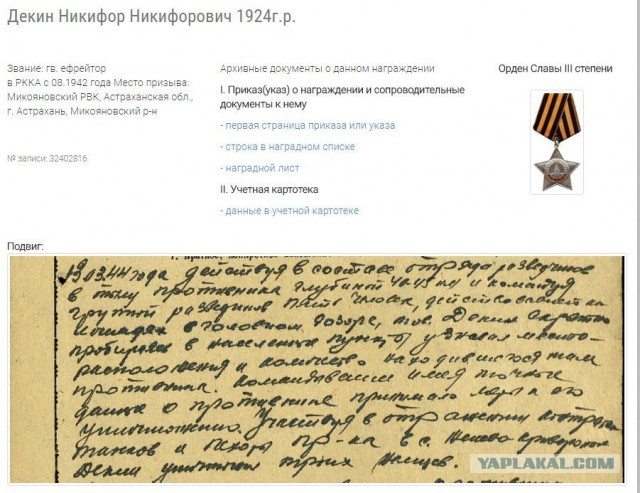 Декин Никифор Никифорович 1924г.р.
Звание: гв. ефрейтор
в РККА с 08.1942 года Место призыва:
Микояновский РВК, Астраханская обл.,
г. Астрахань, Микояновский р-н
№ записи: 32402816
Архивные документы о данном награждении
I. Приказ(указ) о награждении и сопроводительные
документы к нему
- первая страница приказа или указа
- строка в наградном списке
- наградной лист
II. Учетная картотека
- данные в учетной картотеке
Орден Славы III степени
Подвиг:
19.03.44 года действуя в составе отряда разведчиков
в тылу противника глубиной 40-45 км и командуя
группой разведчиков пять человек,
в головном дозоре, тов. Декин скрытно
пробирался в населенные пункты узнавал место-
расположения и количество находившегося там
противника. Командование имея точные
данные о противнике принимало меры к его
уничтожению. Участвуя в отражении контратак
танков и пехоты пр-ка в с.
Декин уничтожил троих немцев.
YAPLAKAL.COM